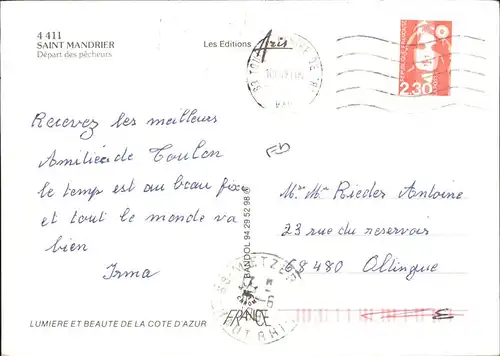 4 411
SAINT MANDRIER
Départ des pêcheurs
Les Editions Aris
REPUBLIQUE FRANCAISE
2,30
Recevez les meilleurs
Amitiées de Toulon
le temps est au beau fixe
et tout le monde va
bien
Irma
BANDOL 94 29 52 98 ®
Mr. Me Rieder Antoine
23 rue du reservois
68480 Oltingue
FRANCE
LUMIERE ET BEAUTE DE LA COTE D'AZUR